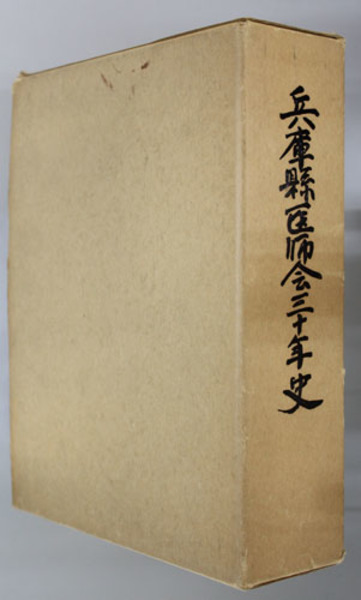 兵庫縣医师会三十年史